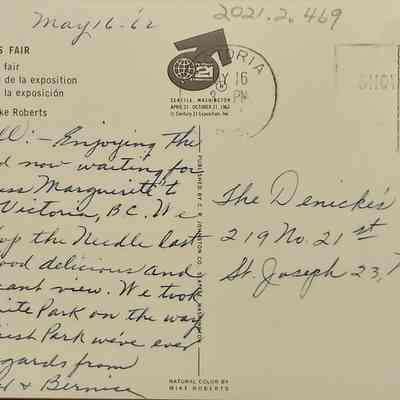 May 16 - 62
2021.2.469
S FAIR
fair
de la exposition
la exposición
ke Roberts
21
SEATTLE, WASHINGTON
APRIL 21 - OCTOBER 21, 1962
© Century 21 Exposition, Inc.
ORIA
Y 16
PM
:- Enjoying the
d now waiting for
ess Marguerite t
Victoria, B.C. We
top the Needle last
ood delicious and
cant view. We took
ite Park on the way
rest Park we've ever
gards from
& Bernice
PUBLISHED BY C. P. JOHNSTON CO. SEATTLE, WASHINGTON
The Denicke's
219 No. 21st
St. Joseph 23,
NATURAL COLOR BY
MIKE ROBERTS